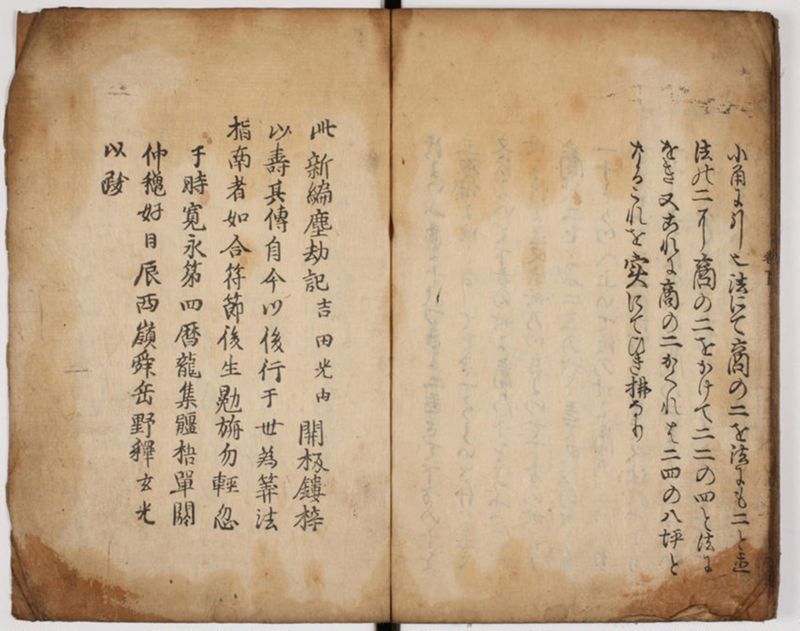 小角に引也法にて商の二を法にも二と立
法の二に商の二をかけて二二の四と法に
をき又これに商の二かくれは二四の八坪と
なるこれを実にてひき拂なり
此新編塵劫記吉田光由開板鏤梓
以壽其傳自今以後行于世為筭法
指南者如合符節後生勉旃勿輕忽
于時寛永第四暦龍集彊梧單閼
仲穐好日辰西嶺舜岳野釋玄光
以跋